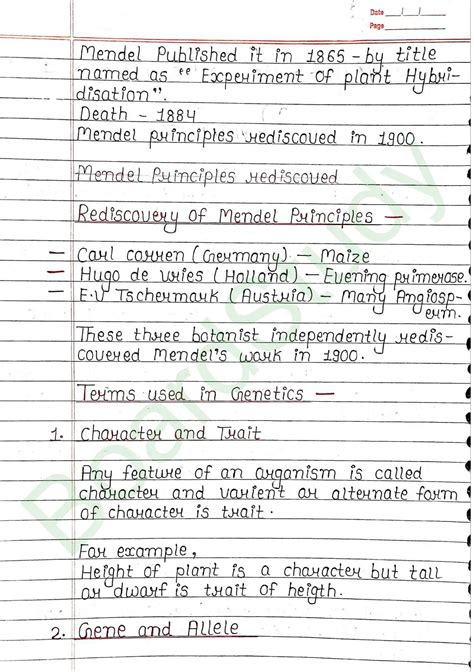 Date __/__/__
Page
Mendel Published it in 1865 - by title
named as "Experiment of plant Hybri-
disation".
Death - 1884
Mendel principles rediscoved in 1900.
Mendel Principles rediscoved
Rediscovery of Mendel Principles —
— Carl corren (Germany) — Maize
— Hugo de vries (Holland) — Evening primerase.
— E.V Tschermark (Austria) — Many Angiosp-
erm.
These three botanist independently redis-
covered Mendel's work in 1900.
Terms used in Genetics —
1. Character and Trait
Any feature of an organism is called
character and varient or alternate form
of character is trait.
For example,
Height of plant is a character but tall
or dwarf is trait of heigth.
2. Gene and Allele
BoardStudy